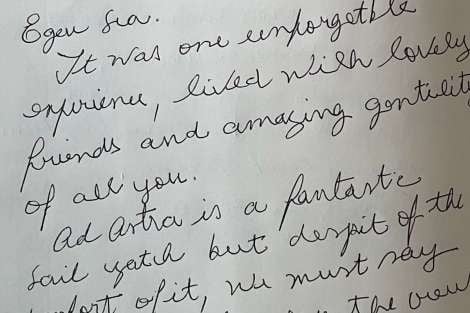 Egeu Sea.
It was one unforgetble
experience, lived with lovely
friends and amazing gentilit
of all you.
Ad Astra is a fantastic
sail yatch but despit of the
of it, we must say
the